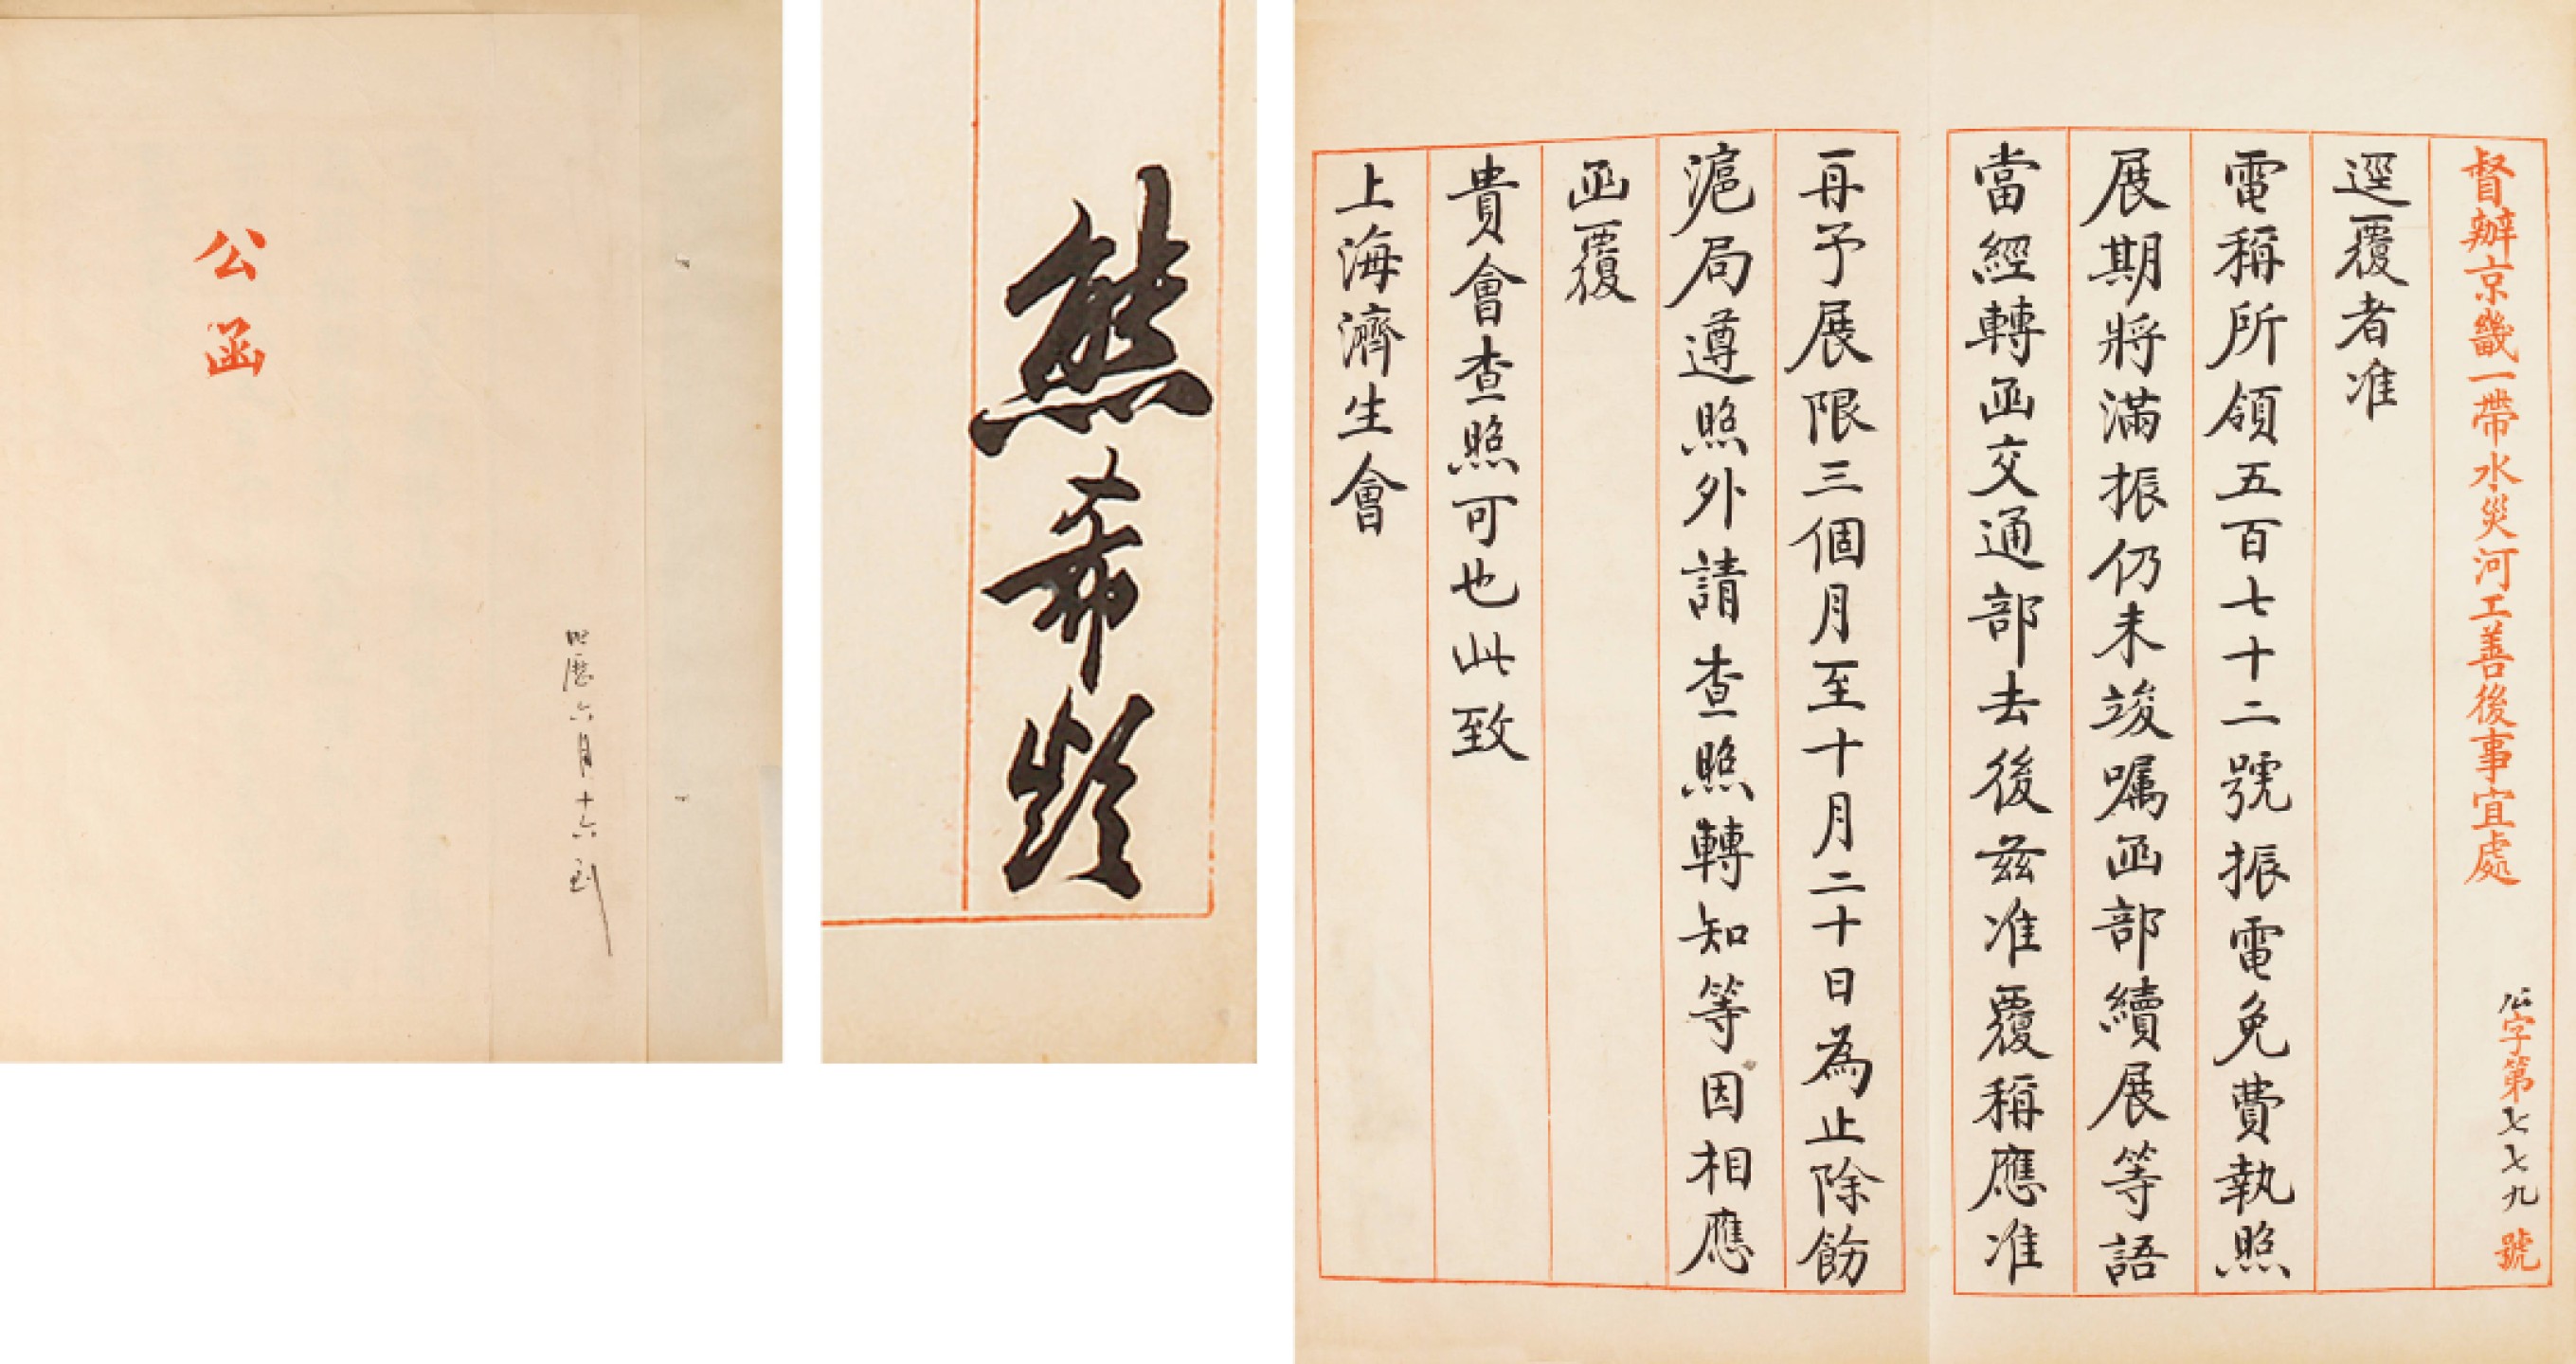 督辦京畿一帶水災河工善後事宜處 公字第七七九號
逕覆者准
電稱所領五百七十二號振電免費執照
展期將滿振仍未竣囑函部續展等語
當經轉函交通部去後茲准覆稱應准
再予展限三個月至十月二十日為止除飭
滬局遵照外請查照轉知等因相應
函覆
貴會查照可也此致
上海濟生會
熊希齡
歷六月十六到
公函